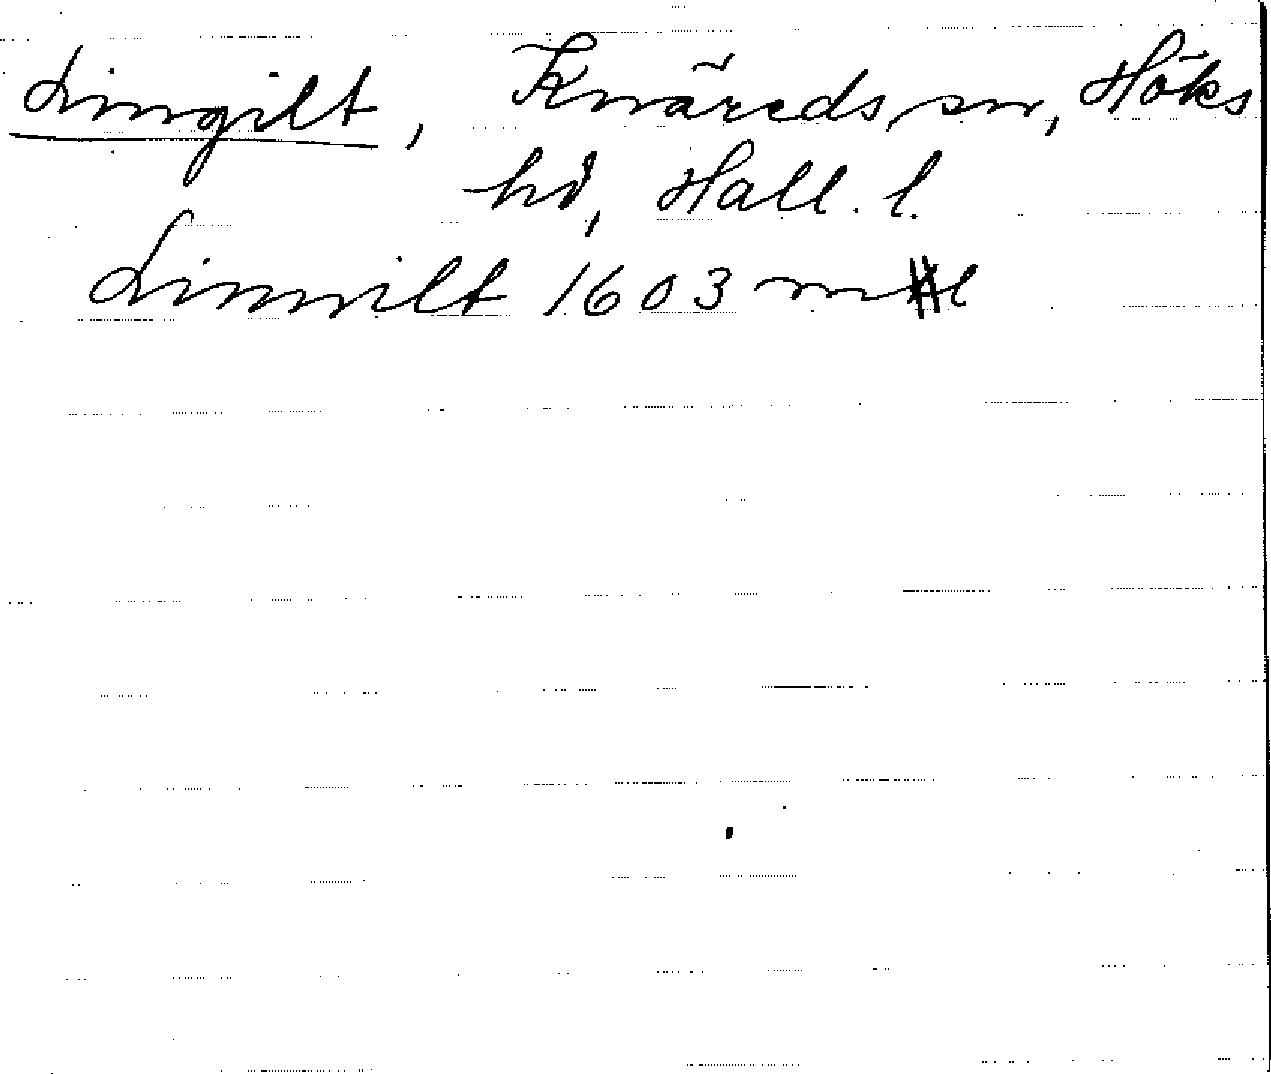 Lingilt, Knäreds sn, Höks
hd, Hall. l.
Linnilt 1603 ml